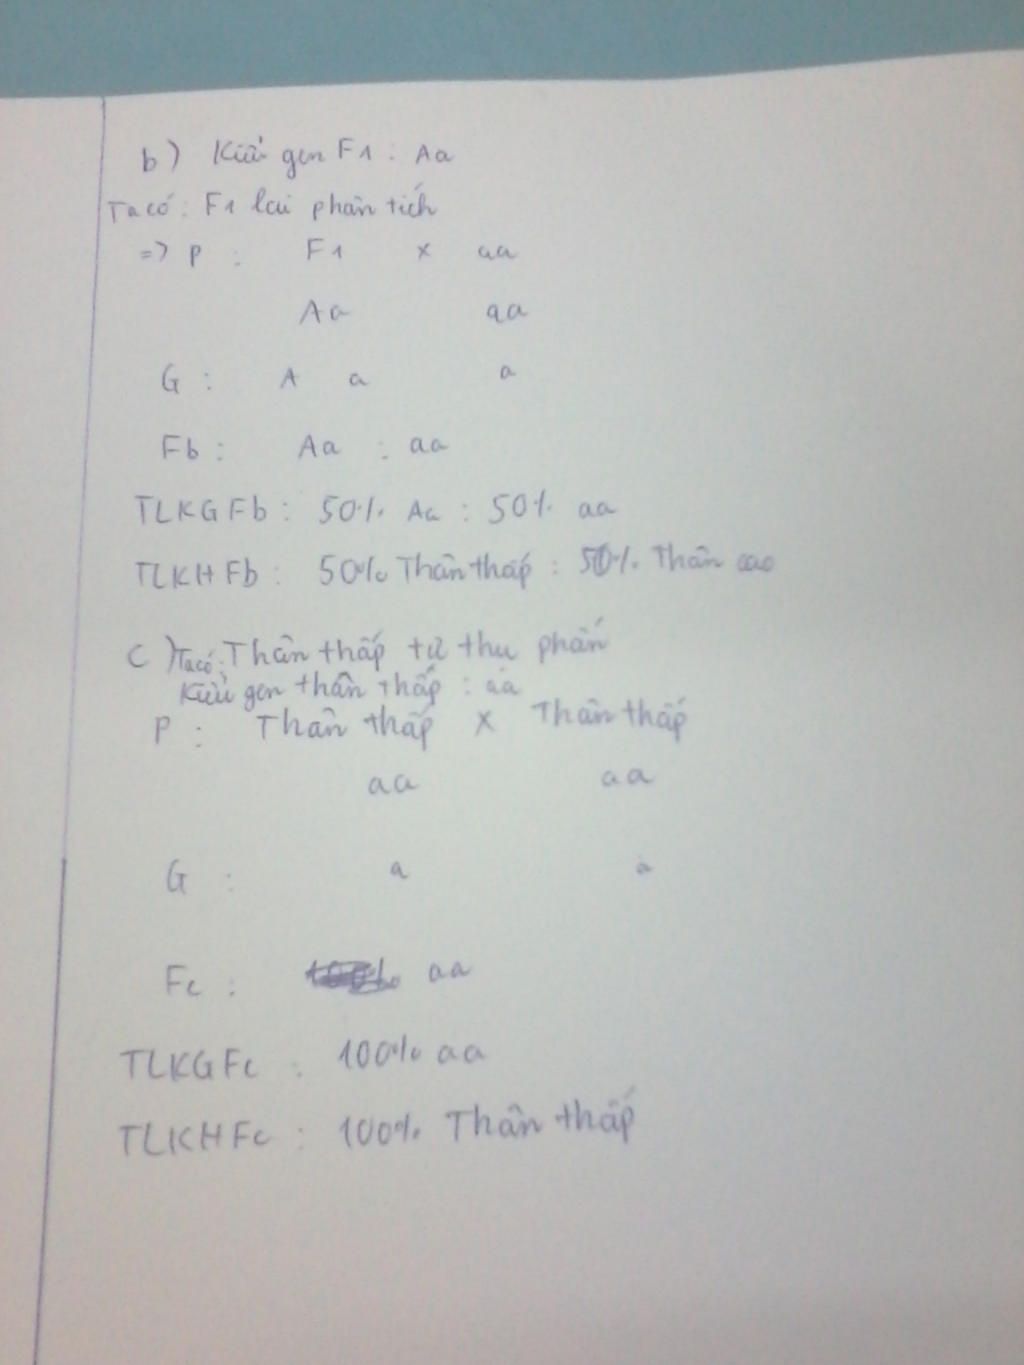 b) Kiểu gen F1 : Aa
Ta có : F1 lai phân tích
=> P : F1 x aa
Aa aa
G : A a a
Fb : Aa : aa
TLKG Fb : 50% Aa : 50% aa
TLKH Fb : 50% Thân thấp : 50% Thân cao
c) Ta có : Thân thấp tự thụ phấn
Kiểu gen thân thấp : aa
P : Thân thấp x Thân thấp
aa aa
G : a a
Fc : aa
TLKG Fc : 100% aa
TLKH Fc : 100% Thân thấp